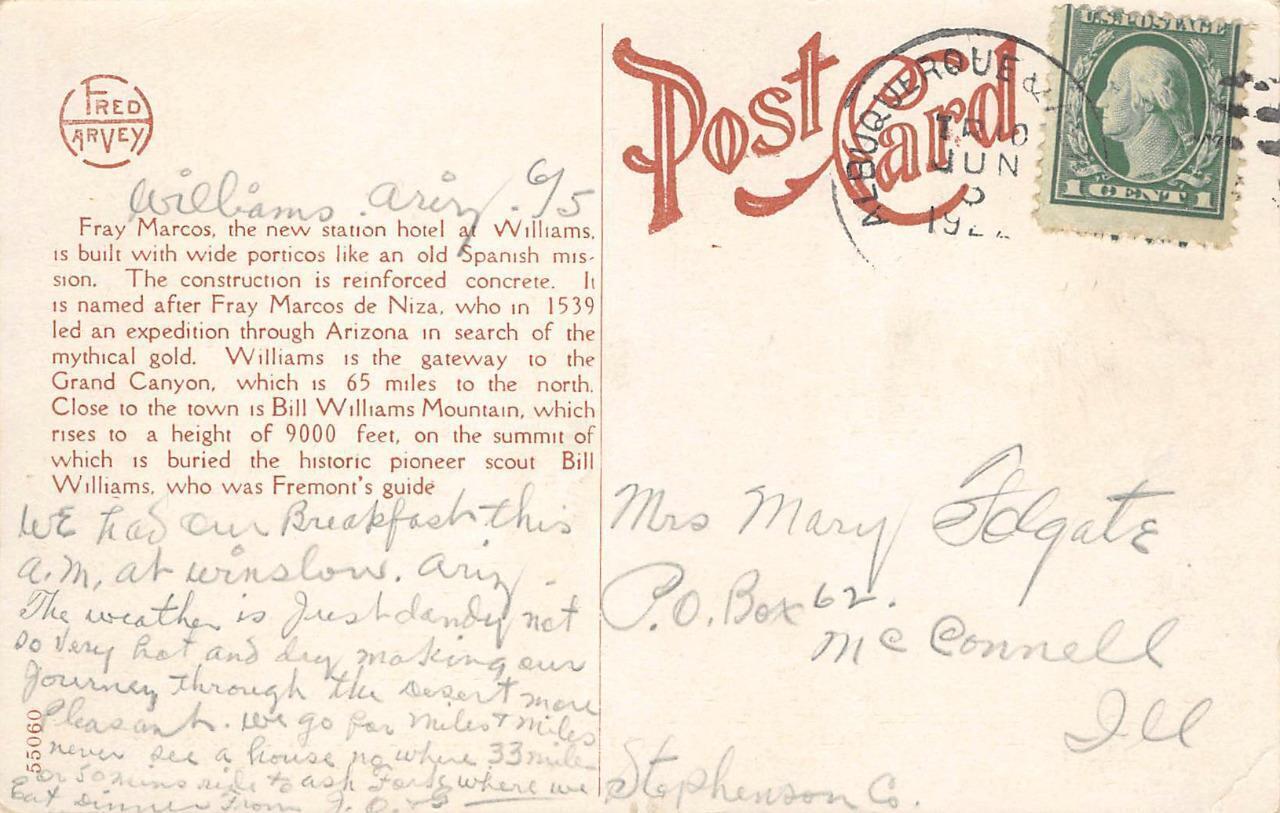 FRED
HARVEY
Williams. Ariz. 6/5
Fray Marcos, the new station hotel at Williams,
is built with wide porticos like an old Spanish mis-
sion. The construction is reinforced concrete. It
is named after Fray Marcos de Niza, who in 1539
led an expedition through Arizona in search of the
mythical gold. Williams is the gateway to the
Grand Canyon, which is 65 miles to the north.
Close to the town is Bill Williams Mountain, which
rises to a height of 9000 feet, on the summit of
which is buried the historic pioneer scout Bill
Williams, who was Fremont's guide
WE had our Breakfast this
a.m, at winslow. Ariz.
The weather is Just dandy not
so very hot and dry making our
Journey through the Desert more
Pleasant. we go for miles + miles
never see a house no where 33 mile
or 50 mins ride to ash Fork where we
Eat Dinner From
55060
POST CARD
ALBUQUERQUE &
JUN
192
U.S. POSTAGE
1 CENT 1
Mrs Mary Folgate
P.O. Box 62.
McConnell
Ill
Stephenson Co.